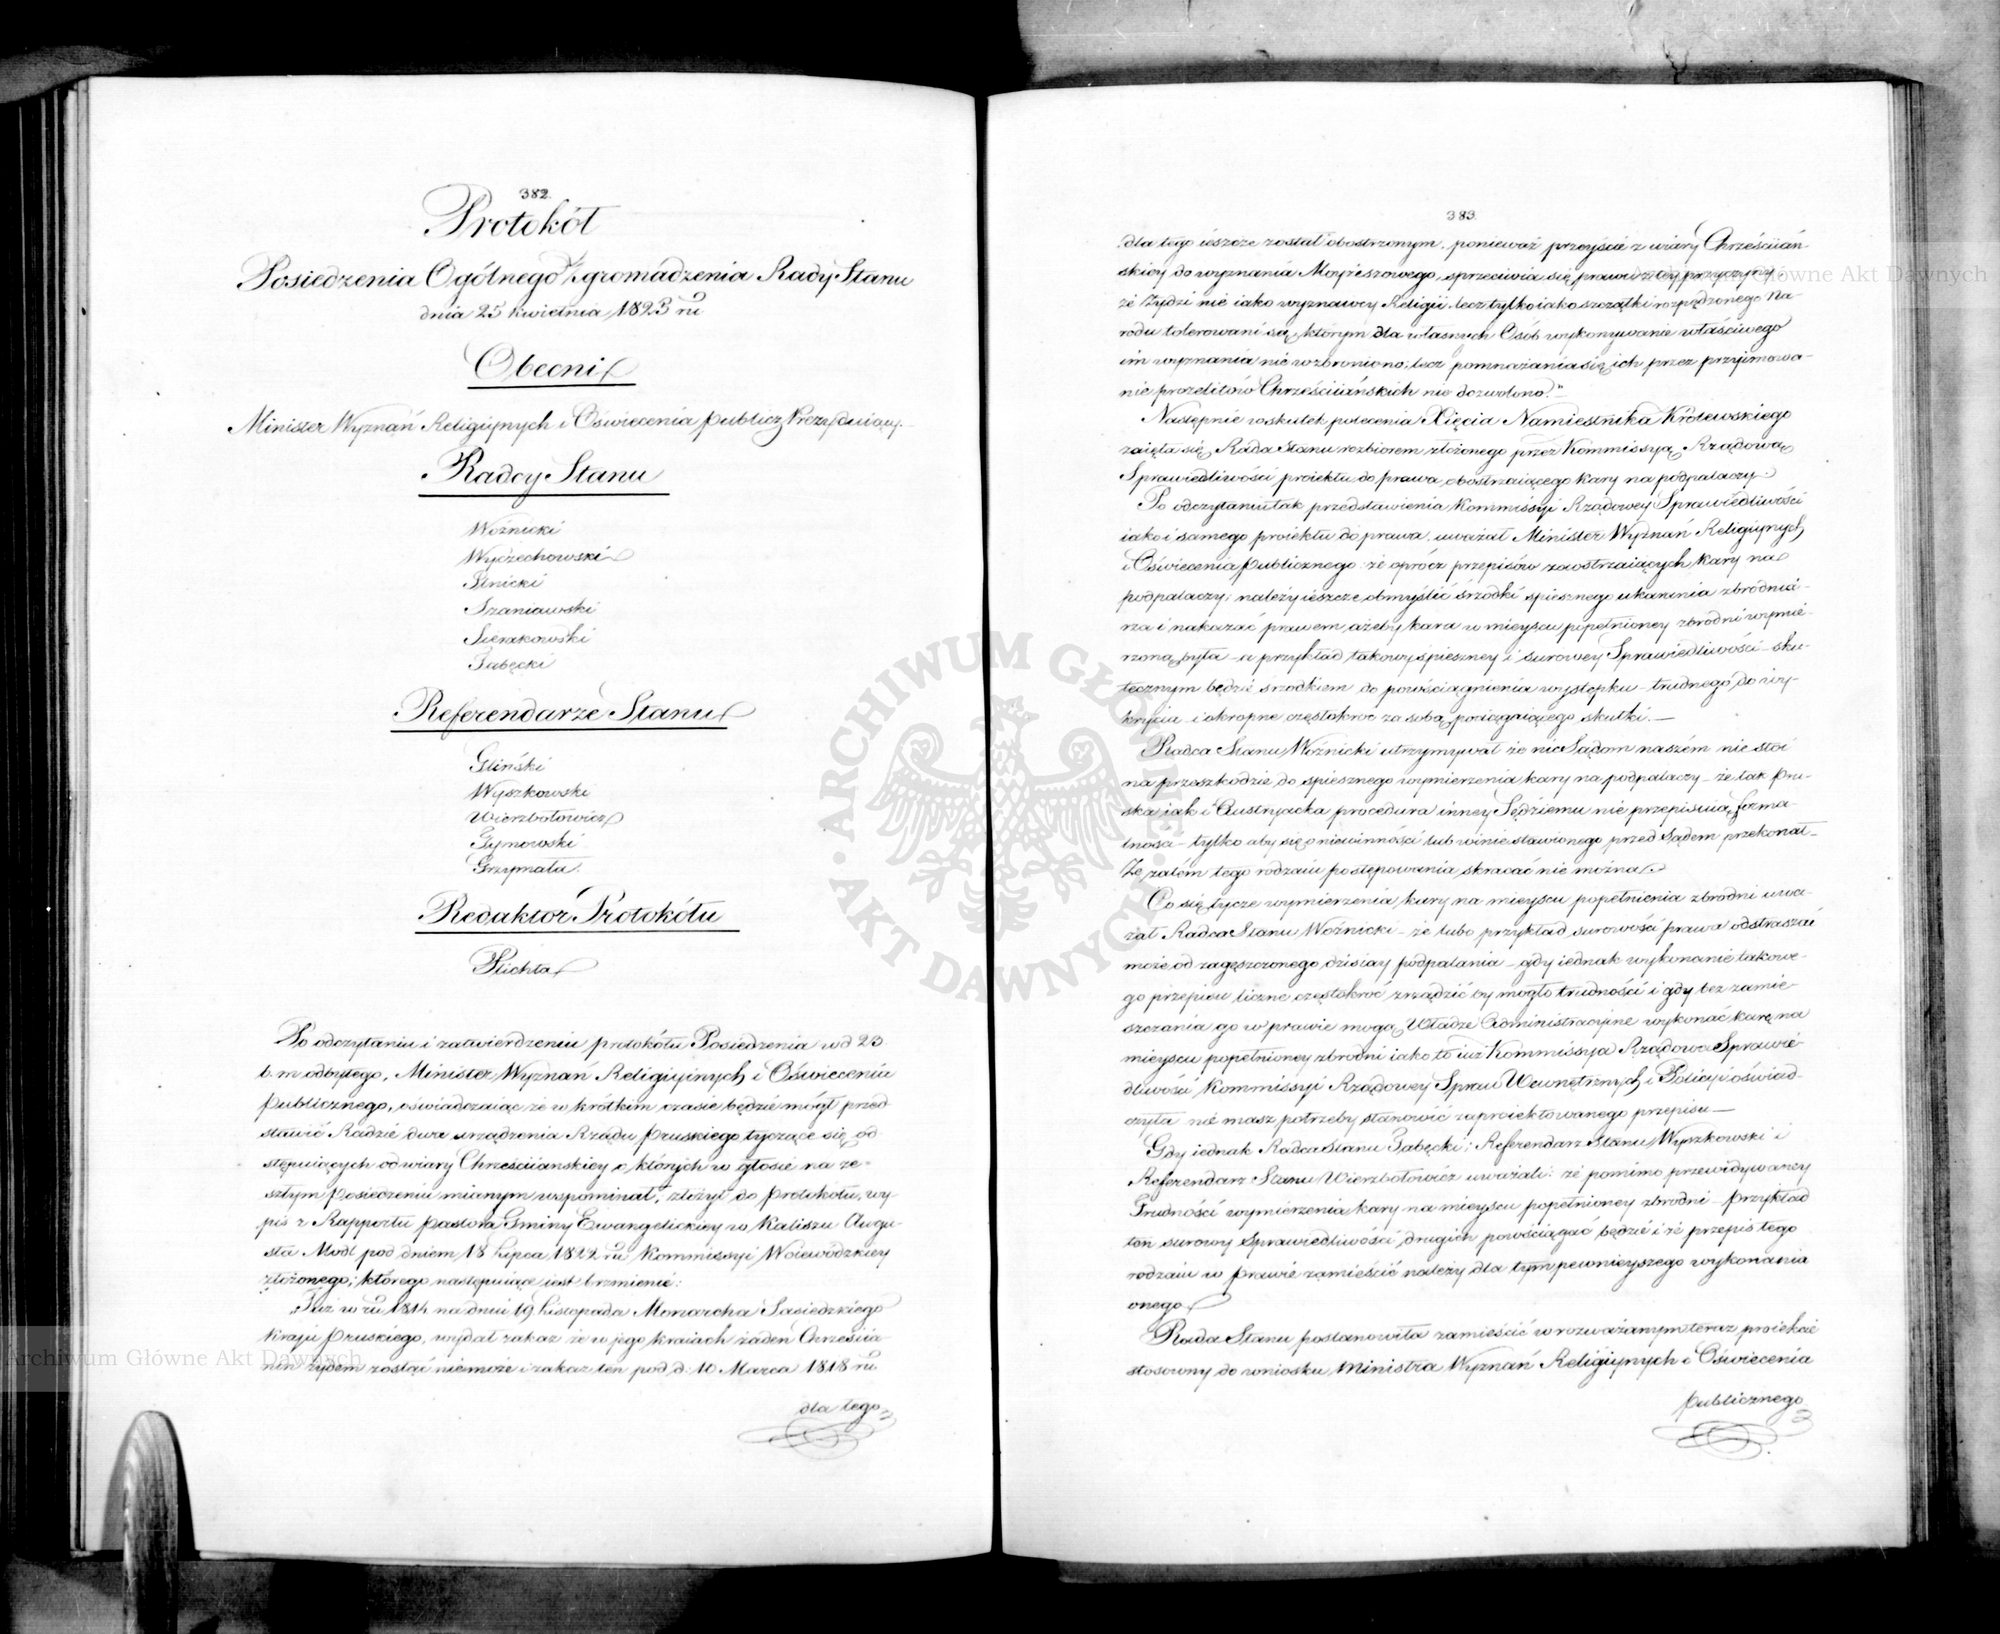 382.
Protokół
Posiedzenia Ogólnego Zgromadzenia Rady Stanu
dnia 25 kwietnia 1823 rū
Obecni
Minister Wyznań Religiynych i Oświecenia publicz Prezyduiący.
Radcy Stanu
Woźnicki
Wyczechowski
Linicki
Szaniawski
Sierakowski
Zabęcki
Referendarze Stanu
Gliński
Wyszkowski
Wierzbołowicz
Tymowski
Grzymała.
Redaktor Protokółu
Plichta
Po odczytaniu i zatwierdzeniu protokółu Posiedzenia w d 23
b. m odbytego, Minister Wyznań Religiynych i Oświecenia
publicznego, oświadczaiąc że w krótkim czasie będzie mógł przed-
stawić Radzie dwa urządzenia Rządu pruskiego tyczące się od-
stępuiących od wiary Chrześciiańskiey o których w głosie na ze-
szłym posiedzeniu mianym wspominał, złożył do protokółu, wy-
pis z Rapportu pastora Gminy Ewangelickiey w Kaliszu Augu-
sta Modl pod dniem 18 Lipca 1822 rū Kommissyi Woiewódzkiey
złożonego; którego następuiące jest brzmienie:
„Już w rū 1814 na dniu 19 Listopada Monarcha Sąsiedzkiego
kraju pruskiego, wydał zakaz że w jego kraiach żaden Chrześciia-
nin żydem zostać niemoże i zakaz ten pod d. 10 Marca 1818 rū
dla tego
383.
dla tego ieszcze został obostrzonym, ponieważ przeyście z wiary Chrześciiań-
skiey do wyznania Moyżeszowego, sprzeciwia się prawu z tey przyczyny
że Żydzi nie iako wyznawcy Religii lecz tylko iako szczątki rozpędzonego Na-
rodu tolerowani są, którym dla własnych Osób wykonywanie właściwego
im wyznania nie wzbroniono; lecz pomnażania się ich przez przyimowa-
nie prozelitów Chrześciiańskich nie dozwolono."
Następnie w skutek polecenia Xięcia Namiestnika Królewskiego
zaięła się Rada Stanu rozbiorem złożonego przez Kommissyą Rządową
Sprawiedliwości proiektu do prawa obostrzaiącego kary na podpalaczy.
Po odczytaniu tak przedstawienia Kommissyi Rządowey Sprawiedliwości
iako i samego proiektu do prawa, uważał Minister Wyznań Religiynych
i Oświecenia publicznego że oprócz przepisów zaostrzaiących kary na
podpalaczy; należy ieszcze obmyślić śrzodki spiesznego ukarania zbrodnia-
rza i nakazać prawem, ażeby kara w mieyscu popełnioney zbrodni wymie-
rzoną była a przykład takowy spieszney i surowey Sprawiedliwości sku-
tecznym będzie śrzodkiem do powściągnienia występku trudnego do wy-
krycia i okropne częstokroć za sobą pociągaiącego skutki.
Radca Stanu Woźnicki utrzymywał że nic Sądom naszém nie stoi
na przeszkodzie do spiesznego wymierzenia kary na podpalaczy że tak pru-
ska iak i Austryacka procedura inney Sędziemu nie przepisuią forma-
lności tylko aby się o niewinności lub winie stawionego przed Sądem przekonał
Że zatém tego rodzaiu postępowania skracać nie można.
Co się tycze wymierzenia kary na mieyscu popełnienia zbrodni uwa-
żał Radca Stanu Woźnicki że lubo przykład surowości prawa odstraszać
może od zagęszczonego dzisiay podpalania gdy iednak wykonanie takowe-
go przepisu liczne częstokroć zrządzić by mogło trudności i gdy bez zamie-
szczania go w prawie mogą Władze Administracyine wykonać karę na
mieyscu popełnioney zbrodni iako to już Kommissya Rządowa Sprawie-
dliwości Kommissyi Rządowey Spraw Wewnętrznych i Policyi oświad-
czyła nie masz potrzeby stanowić zaproiektowanego przepisu
Gdy iednak Radca Stanu Zabęcki i Referendarz Stanu Wyszkowski i
Referendarz Stanu Wierzbołowicz uważali: że pomimo przewidywaney
Trudności wymierzenia kary na mieyscu popełnioney zbrodni przykład
ten surowy Sprawiedliwości, drugich powściągać będzie i że przepis tego
rodzaiu w prawie zamieścić należy dla tym pewnieyszego wykonania
onego
Rada Stanu postanowiła zamieścić w rozważanym teraz proiekcie
stosowny do wniosku Ministra Wyznań Religiynych i Oświecenia
publicznego